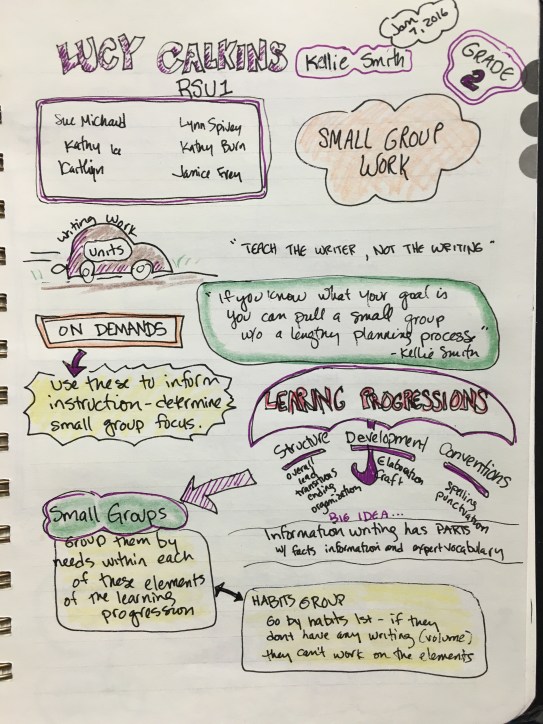 Jan 7, 2016
LUCY CALKINS
Kellie Smith
GRADE 2
RSU1
Sue Michaud
Lynn Spivey
Kathy
Kathy Burn
Kaitlyn
Janice Frey
SMALL GROUP
WORK
Writing Work
Units
"TEACH THE WRITER, NOT THE WRITING"
"If you know what your goal is
you can pull a small group
w/o a lengthy planning process"
-Kellie Smith
ON DEMANDS
use these to inform
instruction - determine
small group focus.
LEARING PROGRESSIONS
Structure
overall
lead
transitions
ending
organization
Development
Elaboration
Craft
Conventions
spelling
punctuation
BIG IDEA...
Information writing has PARTS
w/ facts information and expert vocabulary
Small Groups
group them by
needs within each
of these elements
of the learning
progression
HABITS GROUP
Go by habits 1st - if they
dont have any writing (volume)
they can't work on the elements